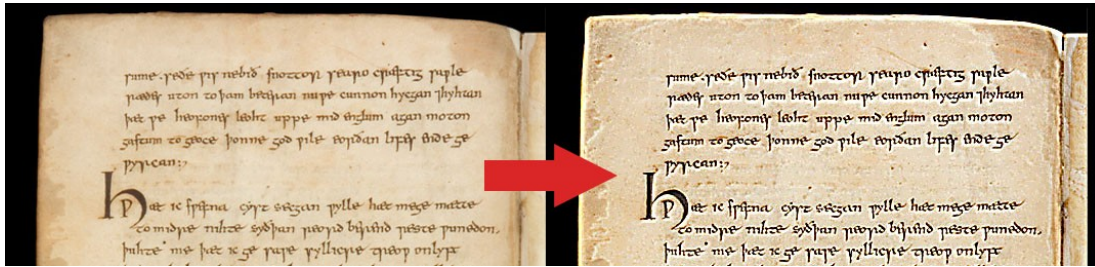 rume. nebið snottor searo cræftig saƿle
rædes uton to þam betran nu ƿe cunnon hycgan ⁊ hyhtan
þæt ƿe heofones leoht uppe mid englum agan moton
gastum to geoce þonne god ƿile eorðan lifes ende ge
ƿyrcan:
hǷæt ic sƿefna cyst secgan ƿylle hæt mege mætte
to midre nihte syðþan reord berend reste ƿunedon.
þuhte me þæt ic ge saƿe syllicre treoƿ onlyft
rume. nebið snottor searo cræftig saƿle
rædes uton to þam betran nu ƿe cunnon hycgan ⁊ hyhtan
þæt ƿe heofones leoht uppe mid englum agan moton
gastum to geoce þonne god ƿile eorðan lifes ende ge
ƿyrcan:
hǷæt ic sƿefna cyst secgan ƿylle hæt mege mætte
to midre nihte syðþan reord berend reste ƿunedon.
þuhte me þæt ic ge saƿe syllicre treoƿ onlyft